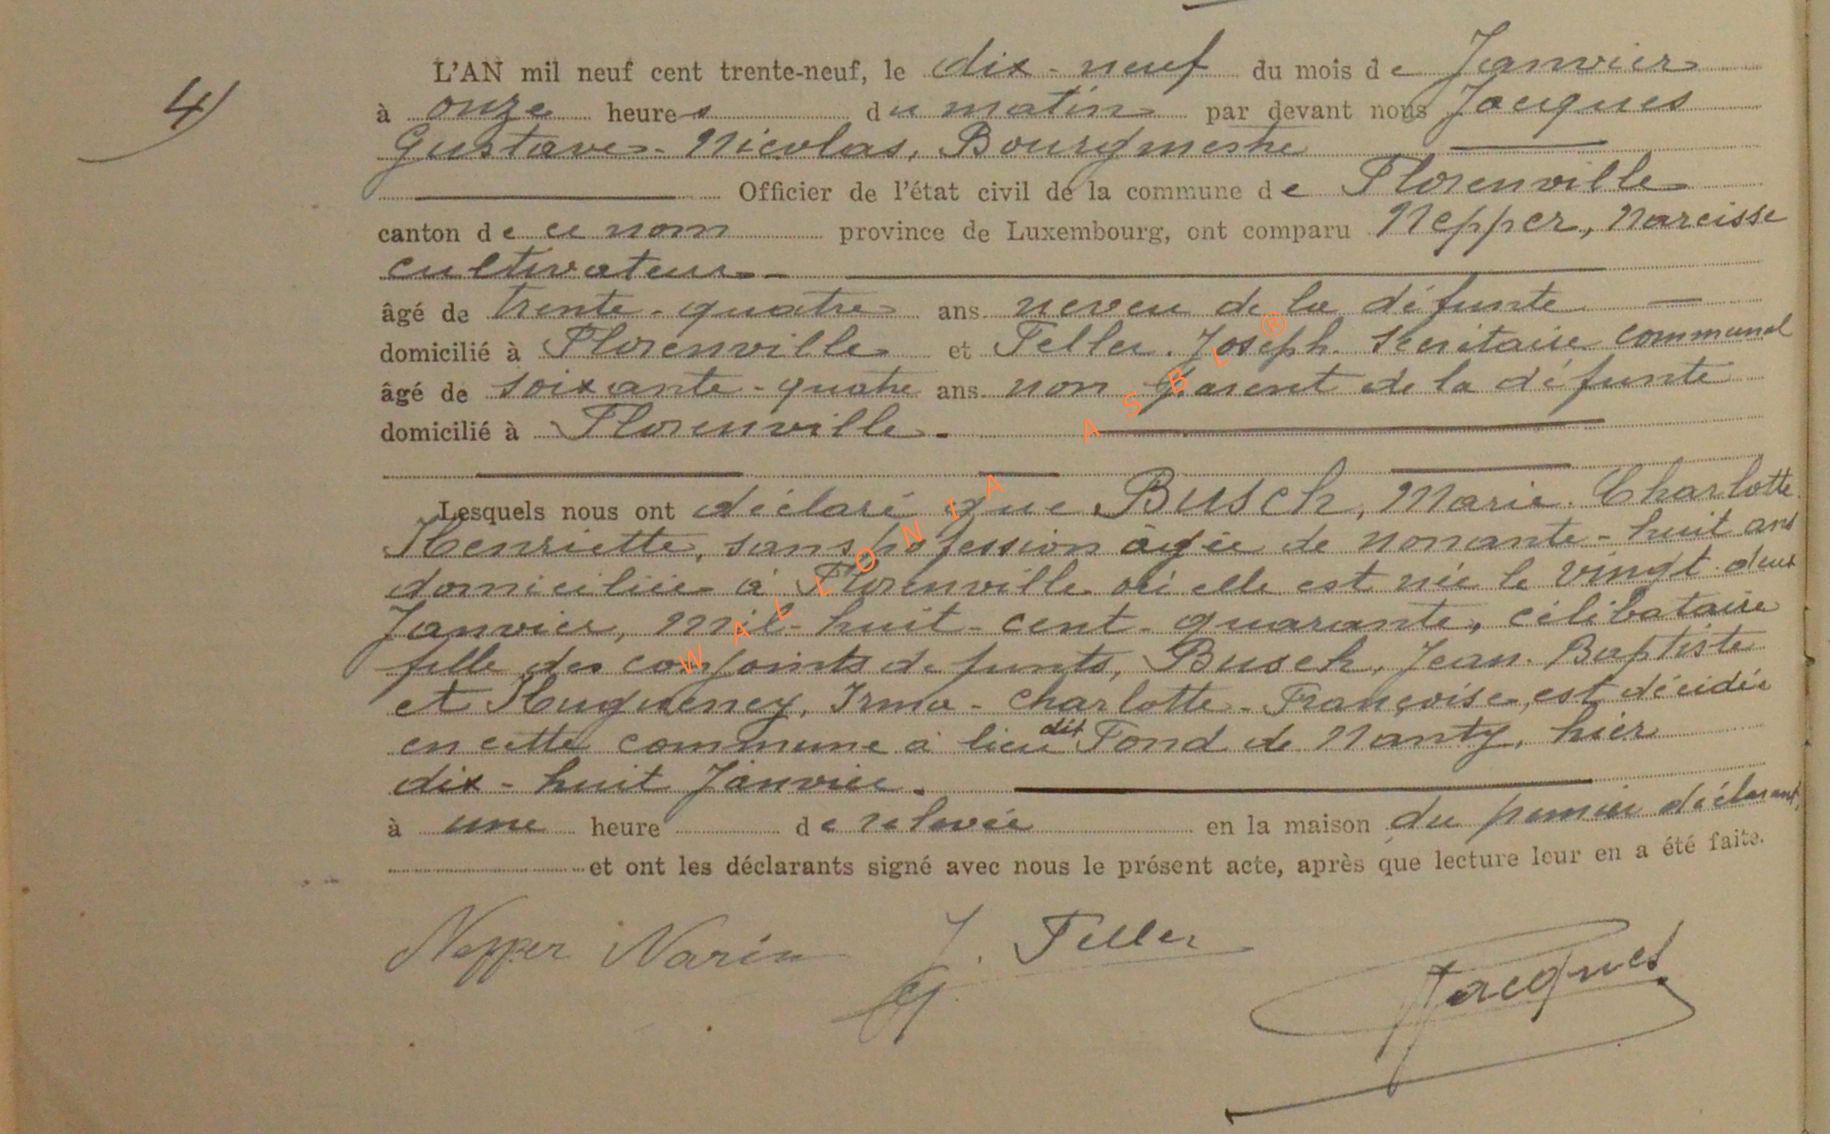 4)
L'AN mil neuf cent trente-neuf, le dix-neuf du mois de Janvier
à onze heures du matin par devant nous Jacques
Gustave-Nicolas, Bourgmestre
Officier de l'état civil de la commune de Florenville
canton de ce nom province de Luxembourg, ont comparu Nepper, Narcisse
cultivateur
âgé de trente-quatre ans neveu de la défunte
domicilié à Florenville et Feller Joseph Secrétaire communal
âgé de soixante-quatre ans non parent de la défunte
domicilié à Florenville.
Lesquels nous ont déclaré que Busch, Marie Charlotte
Henriette, sans profession âgée de nonante-huit ans
domiciliée à Florenville où elle est née le vingt deux
Janvier, mil-huit-cent-quarante, célibataire
fille des conjoints défunts, Busch, Jean-Baptiste
et Hugueney, Irma-Charlotte-Françoise, est décédée
en cette commune à lieu dit Fond de Nanty, hier
dix-huit Janvier.
à une heure de relevée en la maison du premier déclarant,
et ont les déclarants signé avec nous le présent acte, après que lecture leur en a été faite.
Nepper J. Feller
Jacques
WALLONIA ASBL ®